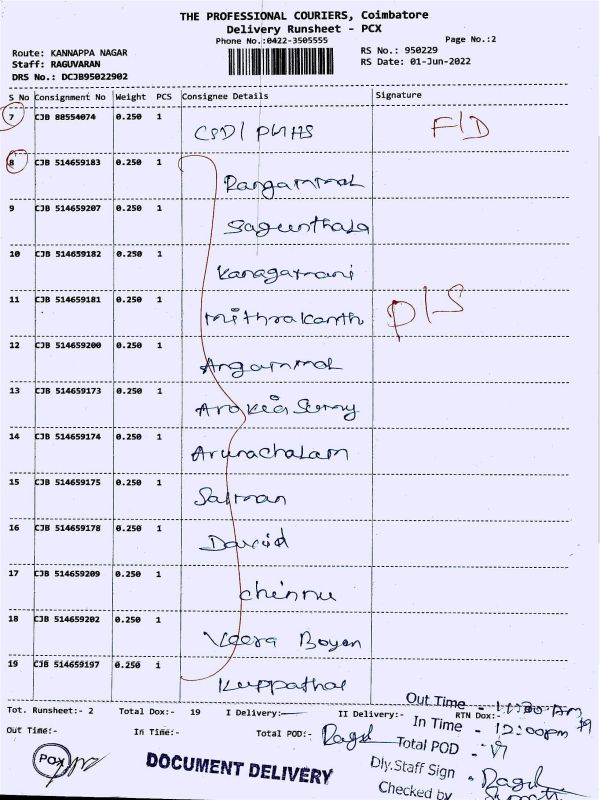 THE PROFESSIONAL COURIERS, Coimbatore
Delivery Runsheet - PCX
Phone No.:0422-3505555
Page No.:2
Route: KANNAPPA NAGAR
RS No.: 950229
Staff: RAGUVARAN
RS Date: 01-Jun-2022
DRS No.: DCJB95022902
S No Consignment No Weight PCS Consignee Details Signature
7 CJB 88554074 0.250 1 F/D
8 CJB 514659183 0.250 1 Rangammal
9 CJB 514659207 0.250 1 Sagunthala
10 CJB 514659182 0.250 1 Kanagamani
11 CJB 514659181 0.250 1 Mithrakanth D/S
12 CJB 514659200 0.250 1 Angammal
13 CJB 514659173 0.250 1 Arokia
14 CJB 514659174 0.250 1 Arunachalam
15 CJB 514659175 0.250 1 Salman
16 CJB 514659178 0.250 1 David
17 CJB 514659209 0.250 1 Chinnu
18 CJB 514659202 0.250 1 Veera Boyan
19 CJB 514659197 0.250 1 Kuppathal
Tot. Runsheet:- 2 Total Dox:- 19 I Delivery:- II Delivery:- RTN Dox:-
Out Time - 11:00 Am
Out Time:- In Time:- Total POD:-
In Time - 12:00pm
Total POD -
PCX
DOCUMENT DELIVERY
Dly.Staff Sign -
Checked by